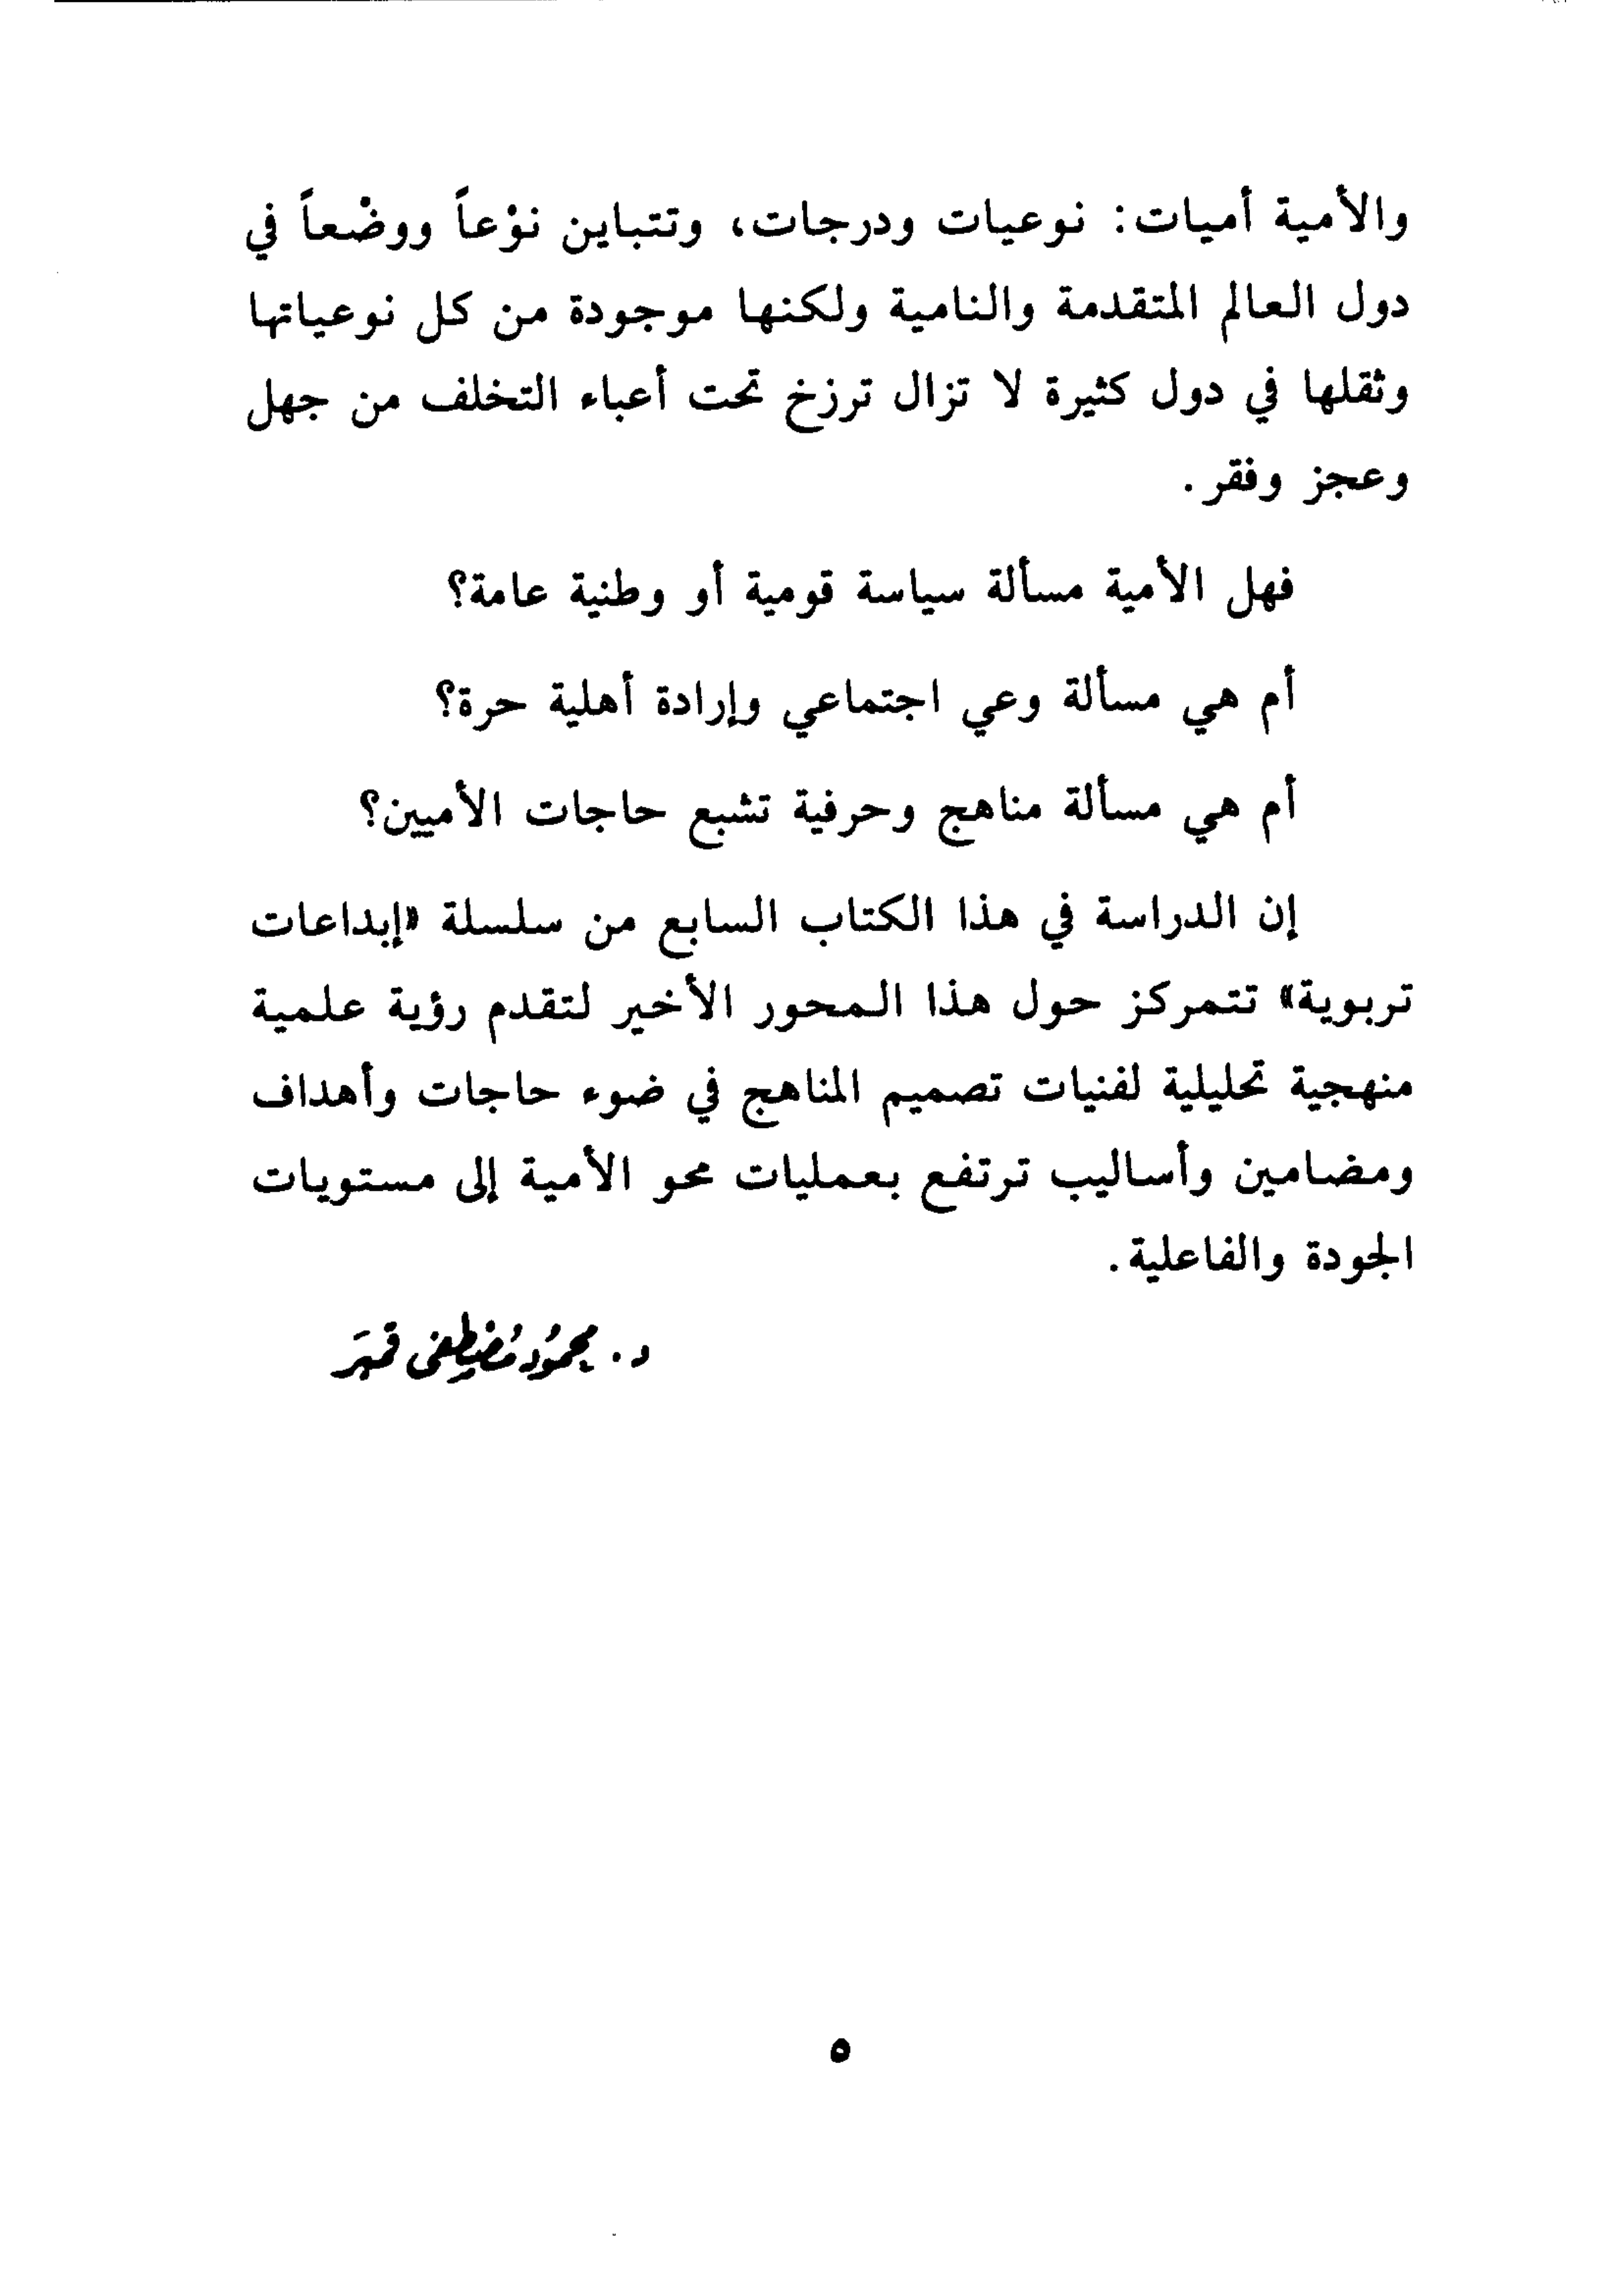 والأمية أميات: نوعيات ودرجات، وتتباين نوْعاً ووضْعاً في
دول العالم المتقدمة والنامية ولكنها موجودة من كل نوعياتها
وثقلها في دول كثيرة لا تزال ترزخ تحت أعباء التخلف من جهل
وعجز وفقر.
فهل الأمية مسألة سياسة قومية أو وطنية عامة؟
أم هي مسألة وعي اجتماعي وإرادة أهلية حرة؟
أم هي مسألة مناهج وحرفية تشبع حاجات الأميين؟
إن الدراسة في هذا الكتاب السابع من سلسلة «إبداعات
تربوية» تتمركز حول هذا المحور الأخير لتقدم رؤية علمية
منهجية تحليلية لفنيات تصميم المناهج في ضوء حاجات وأهداف
ومضامين وأساليب ترتفع بعمليات محو الأمية إلى مستويات
الجودة والفاعلية.
د. محمُود مُصْطفى قمبَر
٥